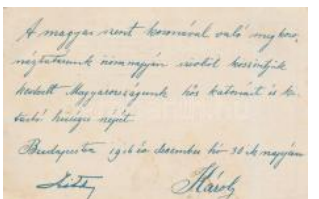 A magyar szent koronával való megkoro-
náztatásunk ünnepnapján szívből köszöntjük
kedvelt Magyarországunk hős katonáit és ki-
tartó hűséges népét.
Budapesten 1916 évi december hó 30 ik napján
Zita Károly